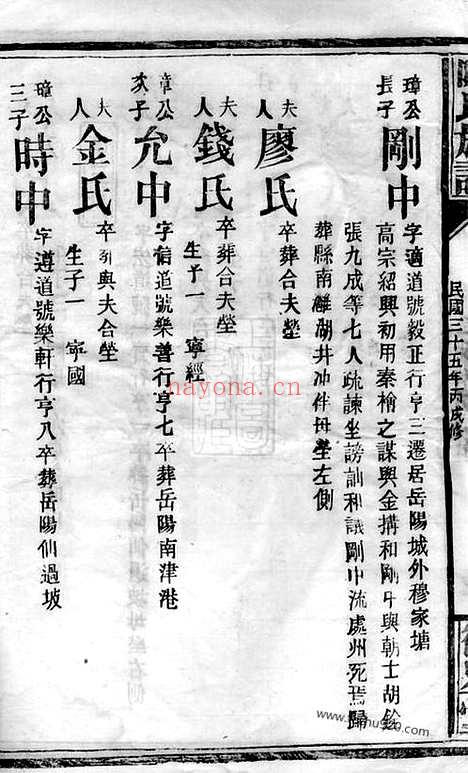 民國三十五年丙戌修
璋公長子 剛中 字適道號毅正行亨三遷居岳陽城外穆家塘
高宗紹興初用秦檜之謀與金搆和剛中與朝士胡銓
張九成等七人疏諫坐謗訕和議剛中流處州死焉歸
葬縣南離湖井冲伴母塋左側
夫人 廖氏 卒葬合夫塋
夫人 錢氏 卒葬合夫塋
生子一 寧經
璋公次子 允中 字信道號樂善行亨七卒葬岳陽南津港
夫人 金氏 卒葬與夫合塋
生子一 寧國
璋公三子 時中 字遵道號樂軒行亨八卒葬岳陽仙過坡
nayona.cn